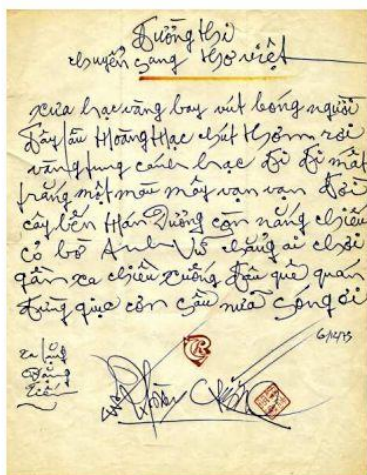 Đường thi
chuyển sang thơ việt
xưa hạc vàng bay vút bóng người
đây lầu Hoàng Hạc chút thơm rơi
vàng tung cánh hạc đi đi mất
trắng một màu mây vạn vạn đời
cây bến Hán Dương còn nắng chiếu
cỏ bờ Anh Vũ chẳng ai chơi
gần xa chiều xuống đâu quê quán
đừng giục cơn sầu nữa sóng ơi
ra tặng
Đặng
Tiến